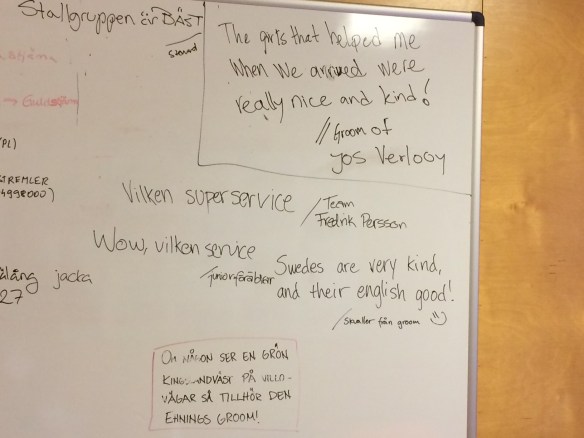 Stallgruppen är BÄST
The girls that helped me
when we arrived were
really nice and kind!
// Groom of
Jos Verlooy
(PL)
Vilken superservice
/ Team
Fredrik Persson
Wow, vilken service
/juniorföräldrar
jacka
27
Swedes are very kind,
and their english good!
/Skvaller från groom
OM NÅGON SER EN GRÖN
PÅ VILLO-
VÄGAR SÅ TILLHÖR DEN
EHNINGS GROOM!